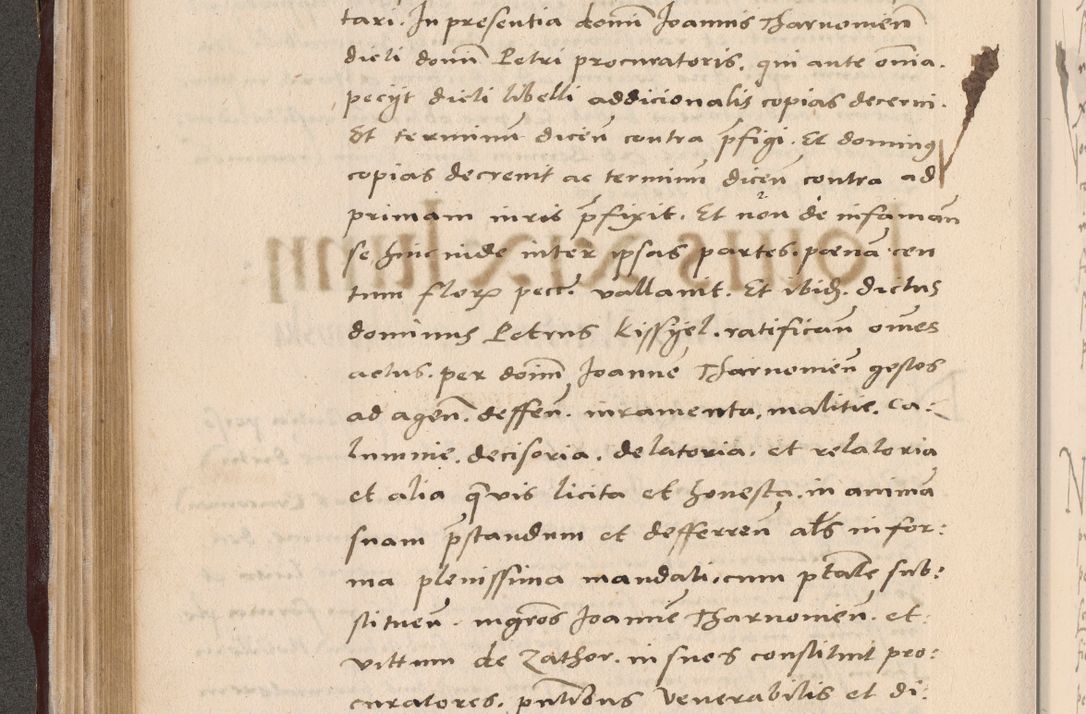 tari. In presentia domi͞ Joannis Tharnomien͞
dicti domi͞ Petri procuratoris. qui ante om͞ia.
pecijt dicti libelli addicionalis copias decerni.
Et terminu͞ dicen͞ contra p͞figi. Et dominus
copias decrevit ac terminu͞ dicen͞ contra ad
primam iuris p͞fixit. Et non de infaman͞
se hinc inde inter ipsas partes. pœna͞ cen
tum flor. pecc. vallavit. Et ibid. dictus
dominus Petrus Kissyel. ratifican͞ om͞es
actus. per domi͞ Joanne͞ Tharnomien͞ gestos
ad agen͞. deffen͞. iuramenta. malitie. ca:
lumnie. decisoria. delatoria. et relatoria
et alia q͞vis licita et honesta. in anima͞
suam p͞standum et defferren͞ al͞s in for:
ma plenissima mandati. cum p͞tate sub:
stituen͞. mg͞ros Joanne͞ Tharnomien͞. et
vittum de Zathor. in suos constituit pro:
curatores. p͞ntibus Venerabilis et di: